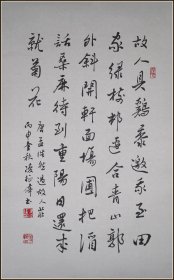 故人具鷄黍邀我至田
家綠樹邨邊合青山郭
外斜開軒面場圃把酒
話桑麻待到重陽日還来
就菊花
唐孟浩然過故人莊
丙申書